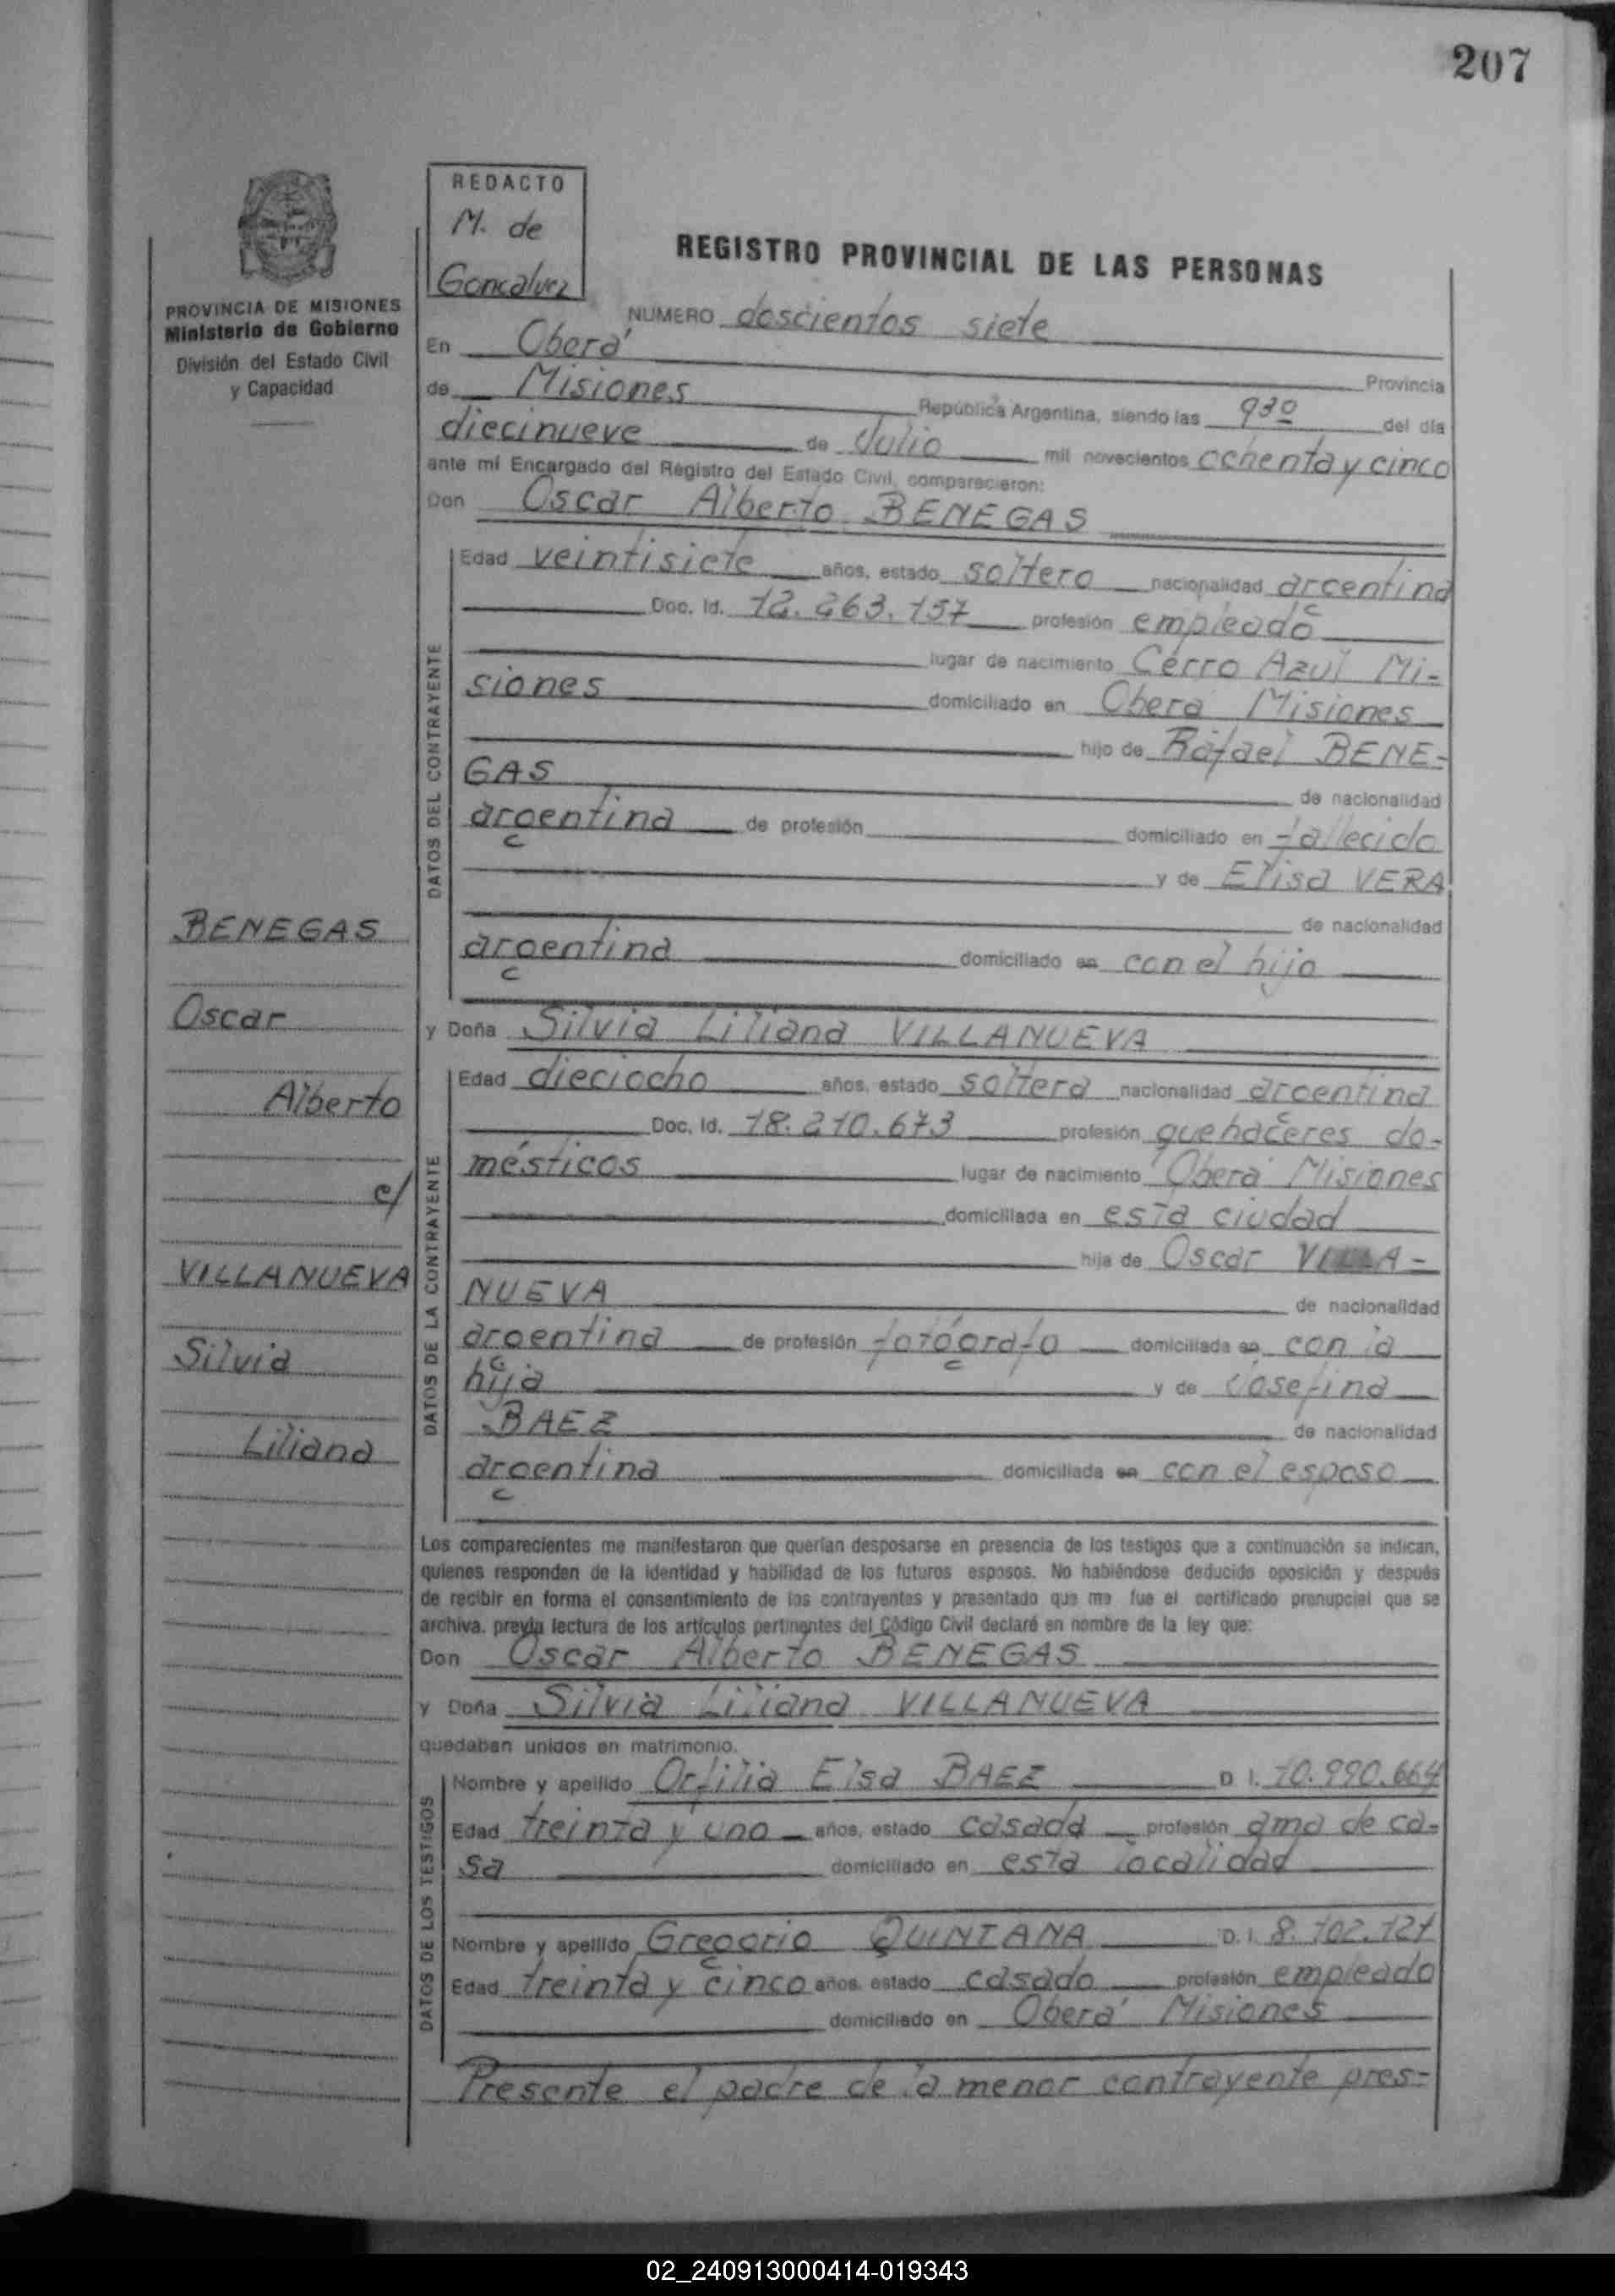 207
REDACTO
M. de
Goncalvez
PROVINCIA DE MISIONES
Ministerio de Gobierno
División del Estado Civil
y Capacidad
REGISTRO PROVINCIAL DE LAS PERSONAS
NUMERO doscientos siete
En Oberá
Provincia
de Misiones República Argentina, siendo las 930 del día
diecinueve de Julio mil novecientos ochenta y cinco
ante mí Encargado del Registro del Estado Civil, comparecieron:
Don Oscar Alberto BENEGAS
DATOS DEL CONTRAYENTE
Edad veintisiete años, estado soltero nacionalidad argentina
Doc. Id. 12.263.157 profesión empleado
lugar de nacimiento Cerro Azul Mi-
siones domiciliado en Oberá Misiones
hijo de Rafael BENE-
GAS de nacionalidad
argentina de profesión domiciliado en fallecido
y de Elisa VERA
de nacionalidad
argentina domiciliado en con el hijo
y Doña Silvia Liliana VILLANUEVA
DATOS DE LA CONTRAYENTE
Edad dieciocho años, estado soltera nacionalidad argentina
Doc. Id. 18.210.673 profesión quehaceres do-
mésticos lugar de nacimiento Oberá Misiones
domiciliada en esta ciudad
hija de Oscar VILLA-
NUEVA de nacionalidad
argentina de profesión fotógrafo domiciliada en con la
hija y de Josefina
BAEZ de nacionalidad
argentina domiciliada en con el esposo
BENEGAS
Oscar
Alberto
c/
VILLANUEVA
Silvia
Liliana
Los comparecientes me manifestaron que querían desposarse en presencia de los testigos que a continuación se indican,
quienes responden de la identidad y habilidad de los futuros esposos. No habiéndose deducido oposición y después
de recibir en forma el consentimiento de los contrayentes y presentado que me fue el certificado prenupcial que se
archiva. previa lectura de los artículos pertinentes del Código Civil declaré en nombre de la ley que:
Don Oscar Alberto BENEGAS
y Doña Silvia Liliana VILLANUEVA
quedaban unidos en matrimonio.
DATOS DE LOS TESTIGOS
Nombre y apellido Orfilia Elsa BAEZ D. I. 10.990.664
Edad treinta y uno años, estado casada profesión ama de ca-
sa domiciliado en esta localidad
Nombre y apellido Gregorio QUINTANA D. I. 8.102.121
Edad treinta y cinco años, estado casado profesión empleado
domiciliado en Oberá Misiones
Presente el padre de la menor contrayente pres-
02_240913000414-019343